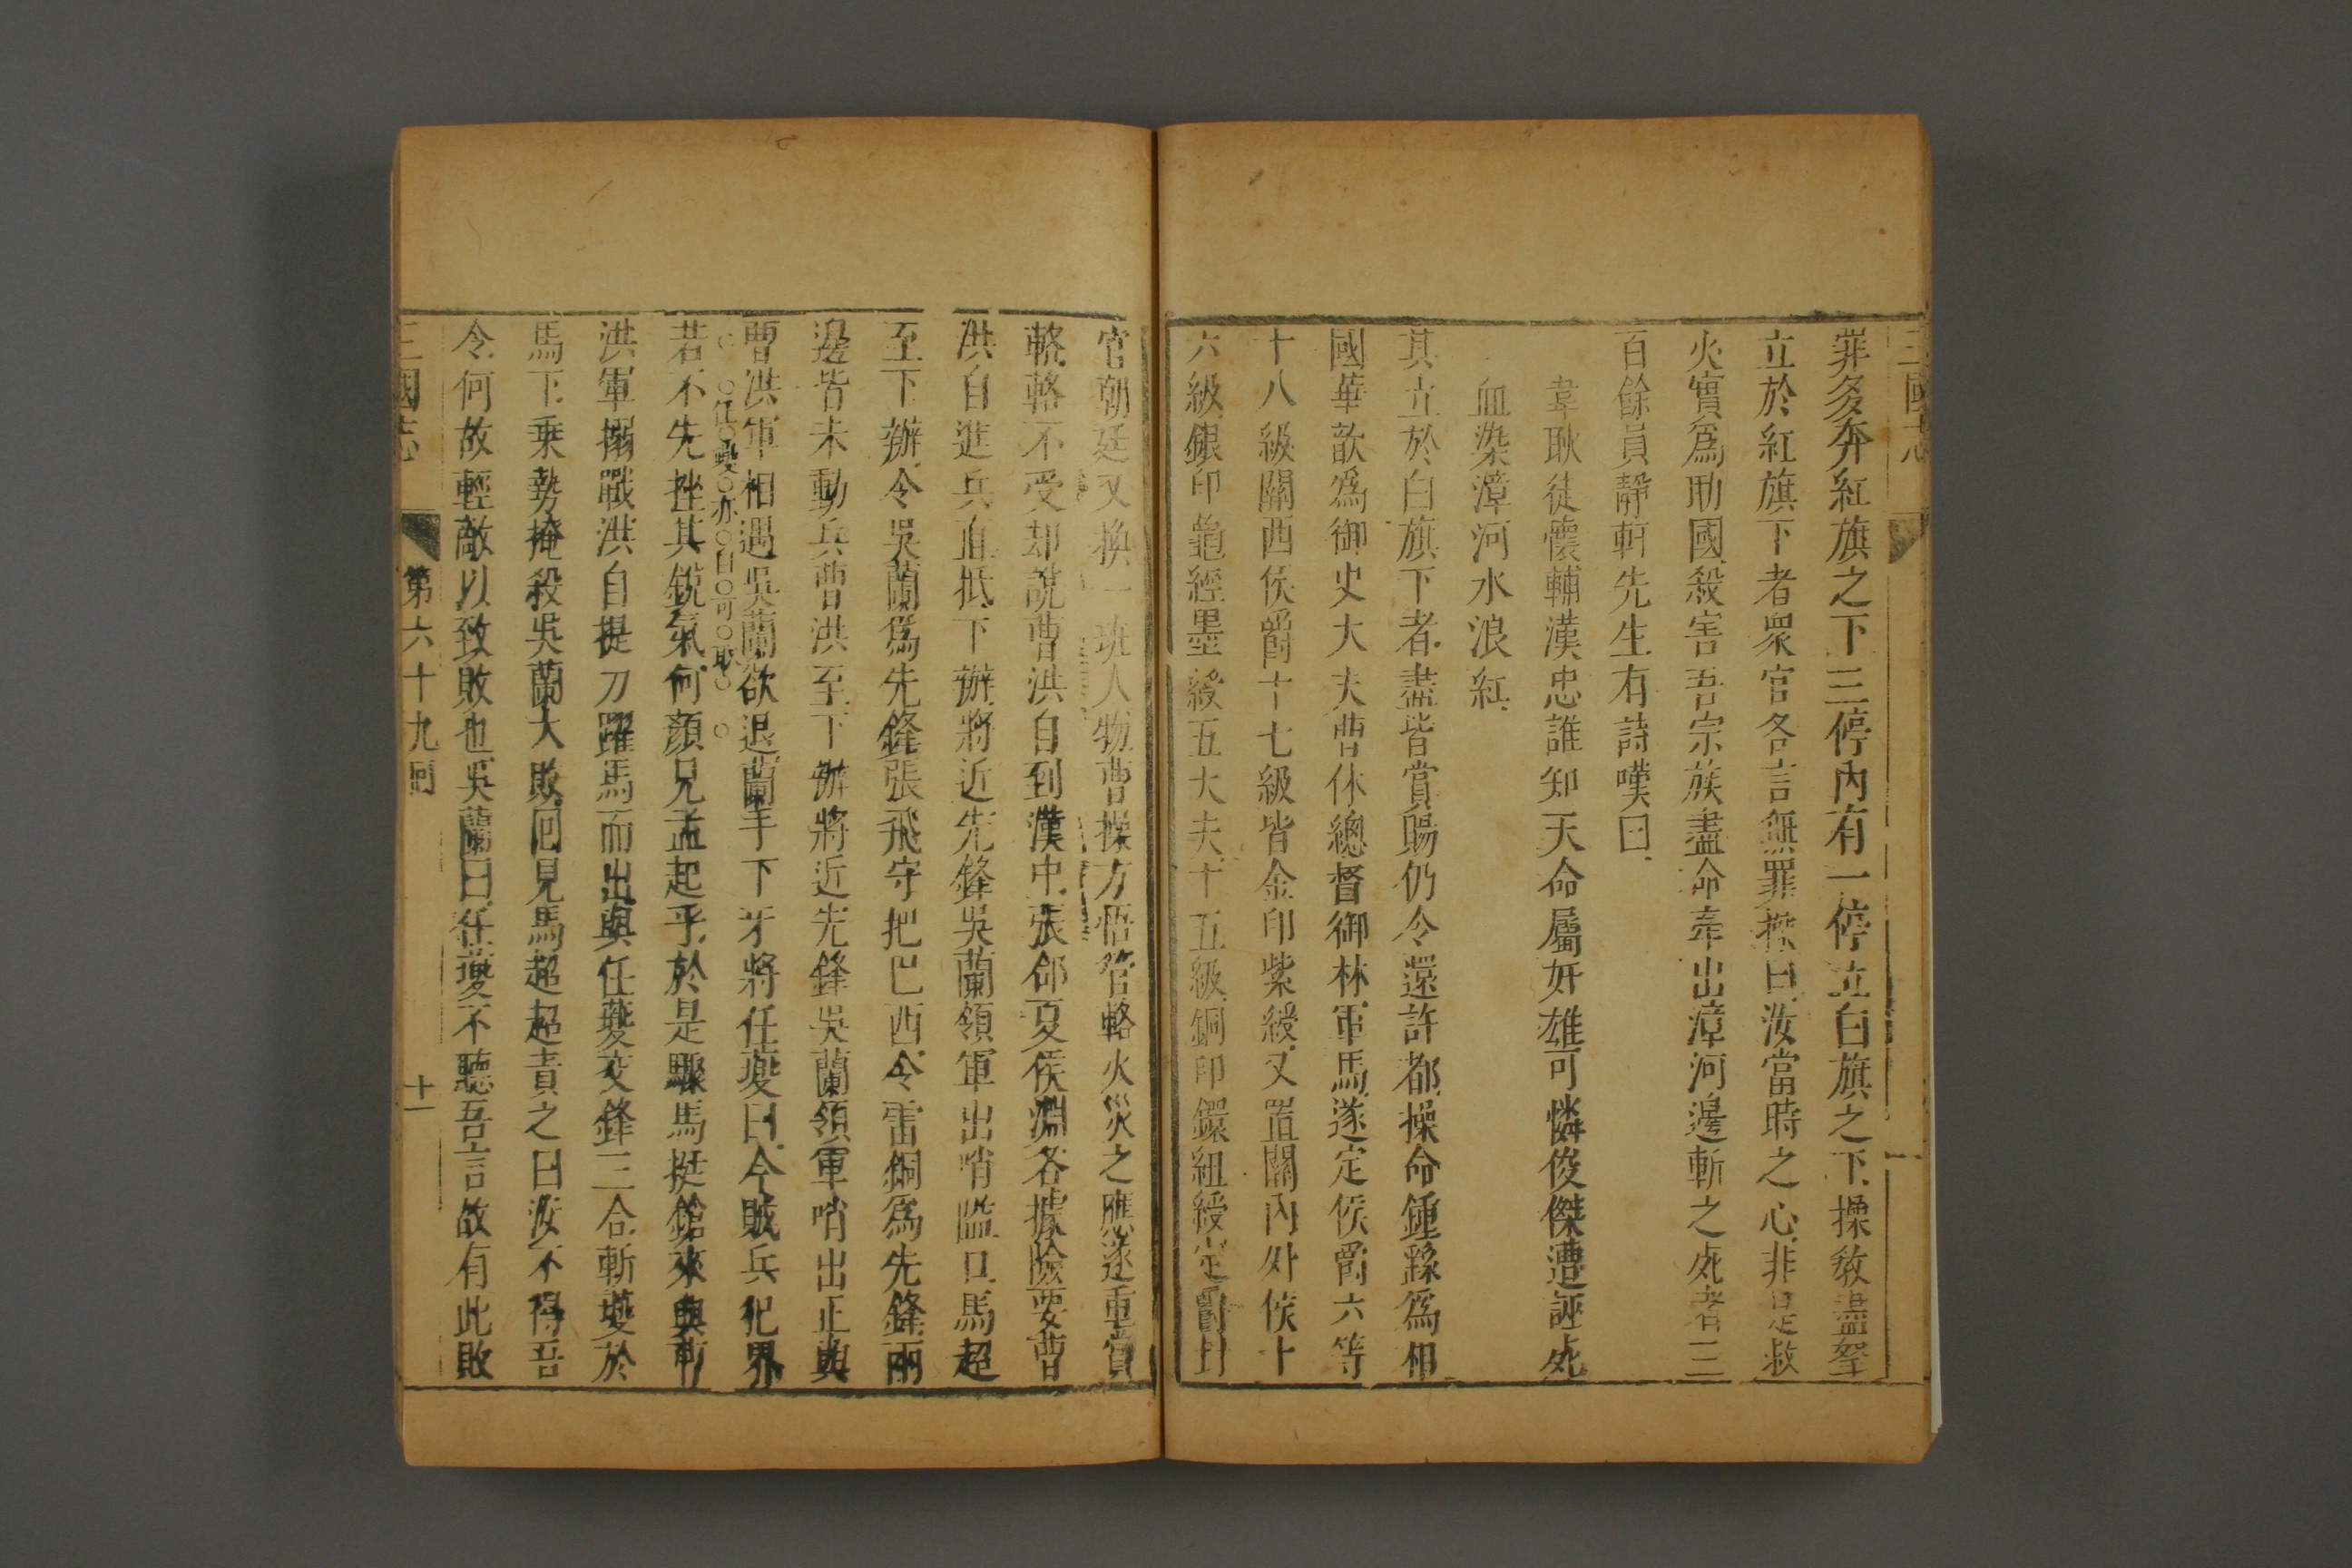 三國志
罪多奔紅旗之下三停內有一停立白旗之下操敎盡拏
立於紅旗下者眾官各言無罪操曰汝當時之心非是救
火實爲助國殺害吾宗族盡命牽出漳河邊斬之死者三
百餘員靜軒先生有詩嘆曰
韋耿徒懷輔漢忠誰知天命屬奸雄可憐俊傑遭誣死
血染漳河水浪紅
其立於白旗下者盡皆賞賜仍令還許都操命鍾繇爲相
國華歆爲御史大夫曹休總督御林軍馬遂定侯爵六等
十八級關西侯爵十七級皆金印紫綬又置關內外侯十
六級銀印龜經墨綬五大夫十五級銅印鐶紐綬定爵封
官朝廷又換一班人物曹操方悟管輅火災之應遂重賞
輅輅不受却說曹洪自到漢中張郃夏侯淵各據險要曹
洪自進兵直抵下辦將近先鋒吳蘭領軍出哨隘口馬超
至下辦令吳蘭爲先鋒張飛守把巴西令雷銅爲先鋒兩
邊皆未動兵曹洪至下辦將近先鋒吳蘭領軍哨出正與
曹洪軍相遇吳蘭欲退蘭手下牙將任夔曰今賊兵犯界
任夔亦自可取
若不先挫其銳氣何顏見孟起乎於是驟馬挺鎗來與曹
洪軍搦戰洪自提刀躍馬而出與任夔交鋒三合斬夔於
馬下乘勢掩殺吳蘭大敗囘見馬超超責之曰汝不得吾
令何故輕敵以致敗也吳蘭曰任夔不聽吾言故有此敗
三國志　第六十九囘　十一